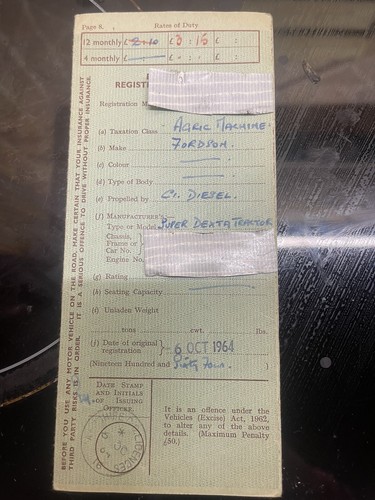 Page 6.
Rates of Duty
12 monthly £ 2:10 £3:15 £ :
4 monthly £ £ : : £ :
REGIST
Registration M
(a) Taxation Class AGRIC MACHINE.
(b) Make FORDSON.
(c) Colour
(d) Type of Body
(e) Propelled by C.I. DIESEL.
(f) MANUFACTURER'S
Type or Model SUPER DEXTA TRACTOR
Chassis,
Frame or
Car No.
Engine No.
(g) Rating
(h) Seating Capacity
(i) Unladen Weight
tons cwt. lbs.
(j) Date of original
registration } 6 OCT 1964
(Nineteen Hundred and Sixty Four. )
DATE STAMP
AND INITIALS
OF ISSUING
OFFICER.
It is an offence under the
Vehicles (Excise) Act, 1962,
to alter any of the above
details. (Maximum Penalty
£50.)
BEFORE YOU USE ANY MOTOR VEHICLE ON THE ROAD, MAKE CERTAIN THAT YOUR INSURANCE AGAINST
THIRD PARTY RISKS IS IN ORDER. IT IS A SERIOUS OFFENCE TO DRIVE WITHOUT PROPER INSURANCE.